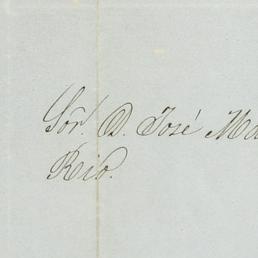 Sor. D. José Ma
Rio.